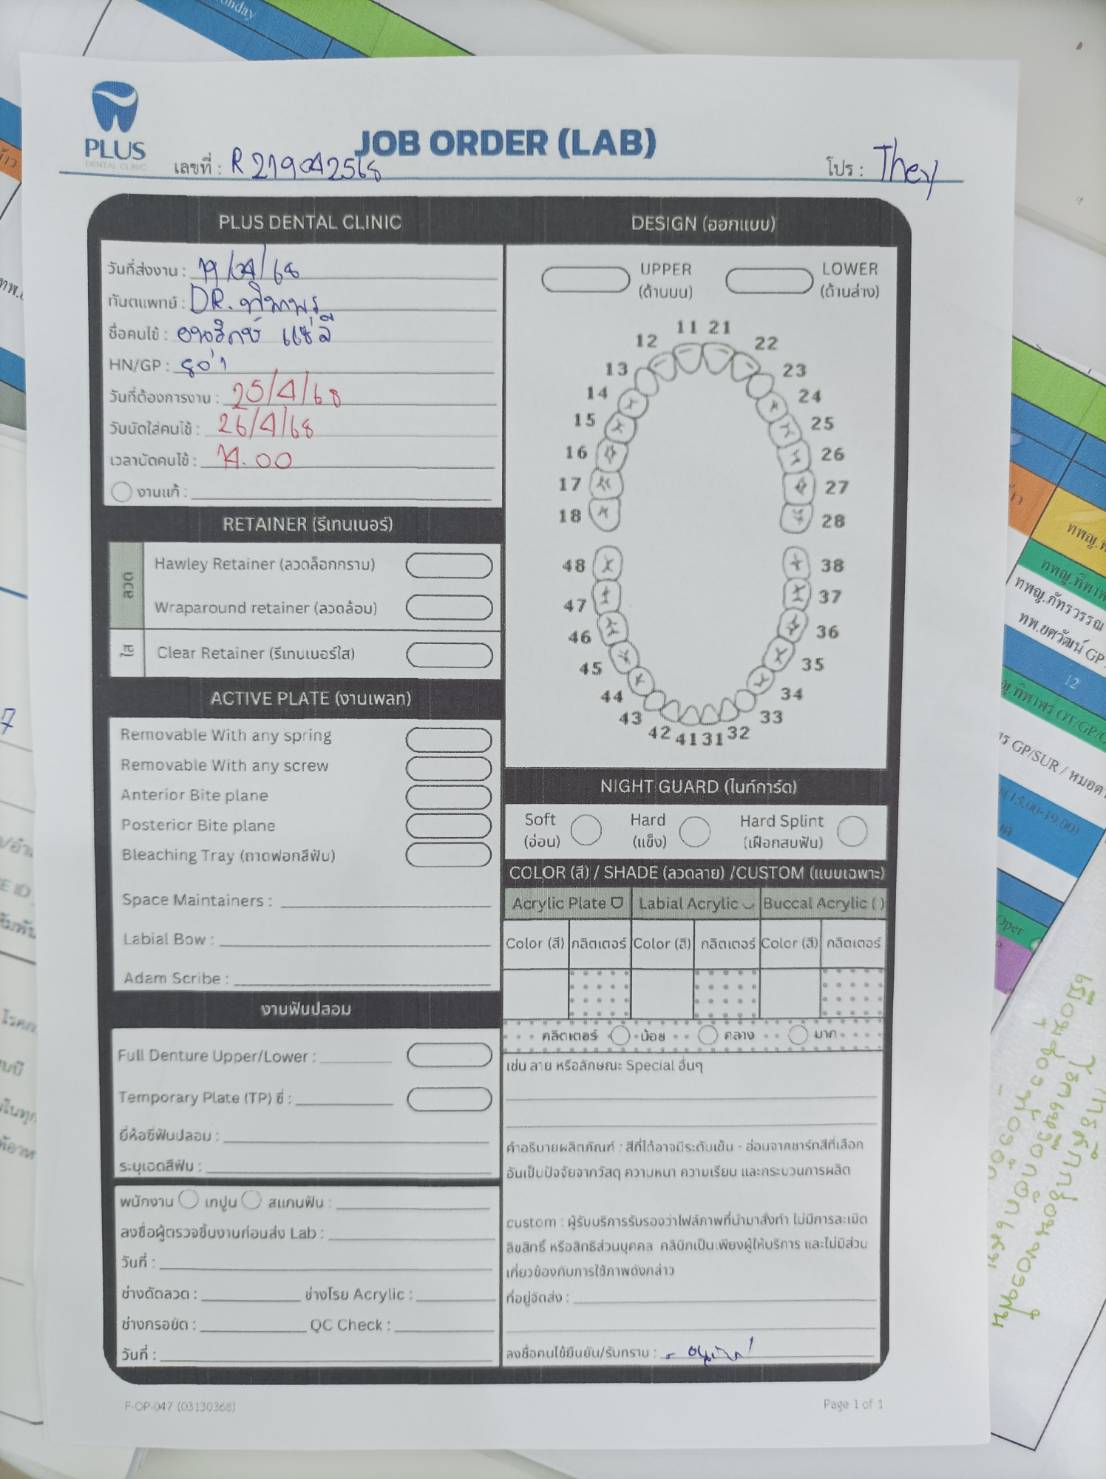 PLUS
DENTAL CLINIC
JOB ORDER (LAB)
เลขที่ : R 219042568
โปร : They
PLUS DENTAL CLINIC
วันที่ส่งงาน : 19/04/68
ทันตแพทย์ : DR.
ชื่อคนไข้ :
HN/GP :
วันที่ต้องการงาน : 25/4/68
วันนัดใส่คนไข้ : 26/4/68
เวลานัดคนไข้ : 14.00
งานแก้ :
RETAINER (รีเทนเนอร์)
ลวด
Hawley Retainer (ลวดล็อกกราม)
Wraparound retainer (ลวดล้อม)
ใส
Clear Retainer (รีเทนเนอร์ใส)
ACTIVE PLATE (งานเพลท)
Removable With any spring
Removable With any screw
Anterior Bite plane
Posterior Bite plane
Bleaching Tray (ถาดฟอกสีฟัน)
Space Maintainers :
Labial Bow :
Adam Scribe :
งานฟันปลอม
Full Denture Upper/Lower :
Temporary Plate (TP) ซี่ :
ยี่ห้อซี่ฟันปลอม :
ระบุเฉดสีฟัน :
พนักงาน เทปูน สแกนฟัน :
ลงชื่อผู้ตรวจชิ้นงานก่อนส่ง Lab :
วันที่ :
ช่างดัดลวด : ช่างโรย Acrylic :
ช่างกรอขัด : QC Check :
วันที่ :
DESIGN (ออกแบบ)
UPPER
(ด้านบน)
LOWER
(ด้านล่าง)
11 21
12 22
13 23
14 24
15 25
16 26
17 27
18 28
48 38
47 37
46 36
45 35
44 34
43 33
42 41 31 32
NIGHT GUARD (ไนท์การ์ด)
Soft
(อ่อน)
Hard
(แข็ง)
Hard Splint
(เฝือกสบฟัน)
COLOR (สี) / SHADE (ลวดลาย) /CUSTOM (แบบเฉพาะ)
Acrylic Plate Labial Acrylic Buccal Acrylic ( )
Color (สี) กลิตเตอร์ Color (สี) กลิตเตอร์ Color (สี) กลิตเตอร์
กลิตเตอร์ น้อย กลาง มาก
เช่น ลาย หรือลักษณะ Special อื่นๆ
คำอธิบายผลิตภัณฑ์ : สีที่ได้อาจมีระดับเข้ม - อ่อนจากชาร์ทสีที่เลือก
อันเป็นปัจจัยจากวัสดุ ความหนา ความเรียบ และกระบวนการผลิต
custom : ผู้รับบริการรับรองว่าไฟล์ภาพที่นำมาสั่งทำ ไม่มีการละเมิด
ลิขสิทธิ์ หรือสิทธิส่วนบุคคล คลินิกเป็นเพียงผู้ให้บริการ และไม่มีส่วน
เกี่ยวข้องกับการใช้ภาพดังกล่าว
ที่อยู่จัดส่ง :
ลงชื่อคนไข้ยืนยัน/รับทราบ :
F-OP-047 (03130368)
Page 1 of 1